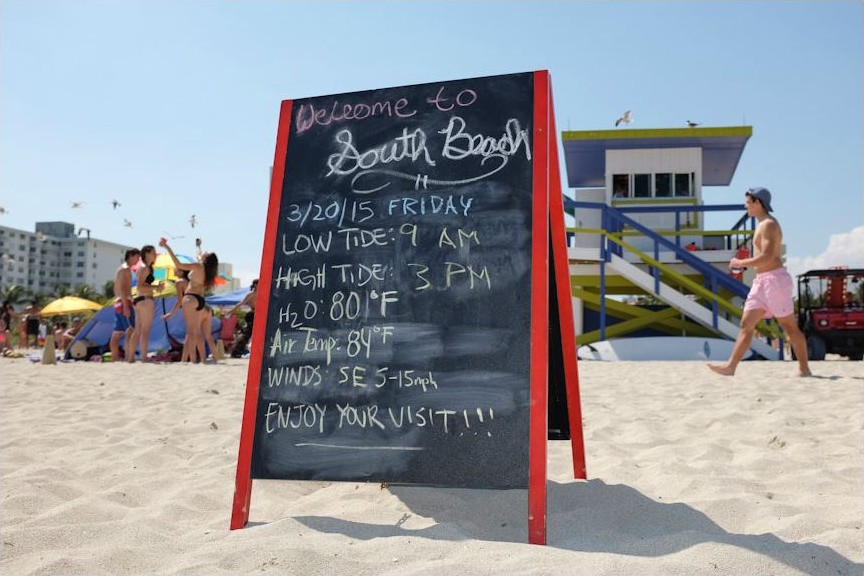 Welcome to
South Beach
3/20/15 FRIDAY
LOW TIDE: 9 AM
HIGH TIDE: 3 PM
H2O: 80°F
Air Temp: 84°F
WINDS: SE 5-15mph
ENJOY YOUR VISIT!!!